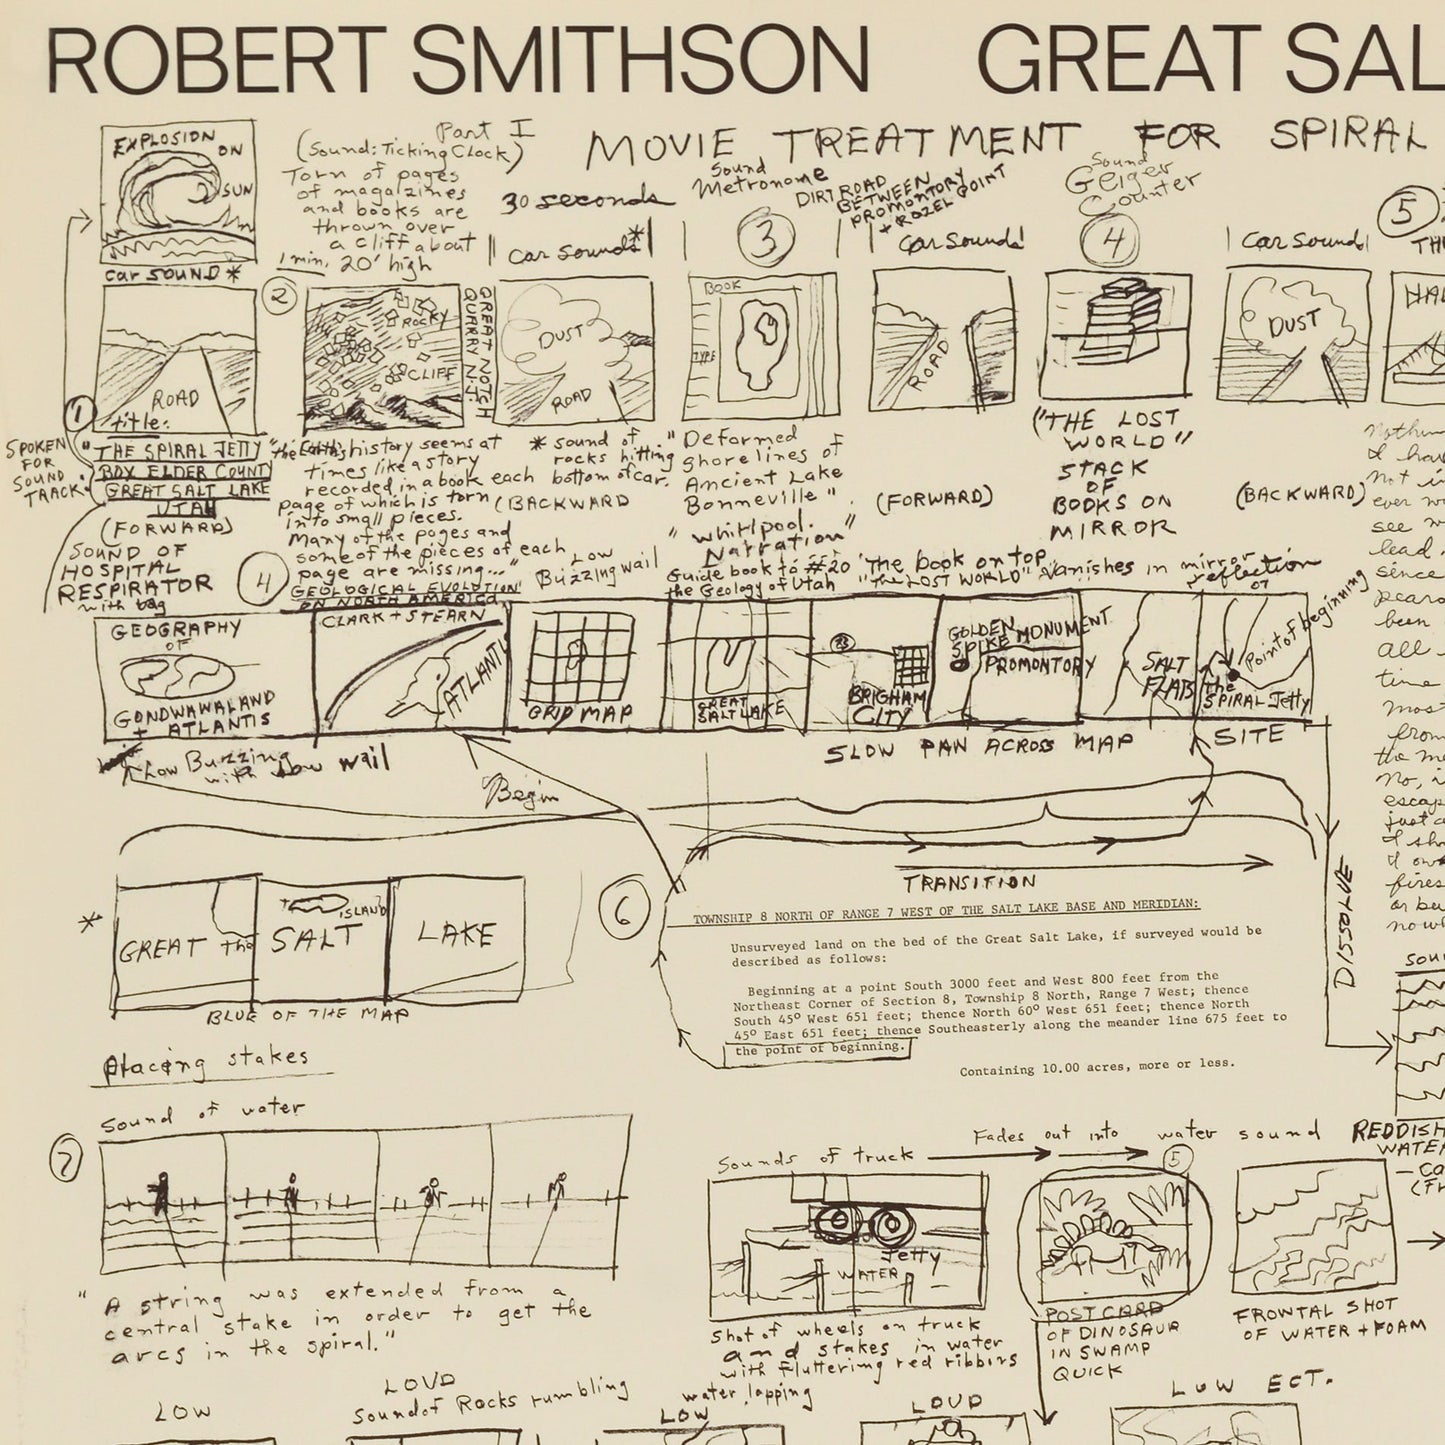 ROBERT SMITHSON GREAT SAL
MOVIE TREATMENT FOR SPIRAL
EXPLOSION
ON
SUN
Part I
(Sound: Ticking Clock)
Torn of pages
of magalzines
and books are
thrown over
a cliff about
1 min. 20' high
30 seconds
Sound
Metronome
DIRT ROAD
BETWEEN
PROMONTORY POINT
+ ROZEL
Sound
Geiger
Counter
5
car SOUND *
2
car sounds*
3
car sounds
4
car sound
TH
ROAD
ROCKY
CLIFF
GREAT NOTCH
QUARRY N.J.
DUST
ROAD
BOOK
TYPE
ROAD
DUST
1
title:
SPOKEN
FOR
SOUND
TRACK:
"THE SPIRAL JETTY
BOX ELDER COUNTY
GREAT SALT LAKE
UTAH
(FORWARD)
SOUND OF
HOSPITAL
RESPIRATOR
with bag
"the Earth's history seems at
times like a story
recorded in a book each
page of which is torn
into small pieces.
Many of the pages and
some of the pieces of each
page are missing..."
GEOLOGICAL EVOLUTION
ON NORTH AMERICA
CLARK + STEARN
* sound of
rocks hitting
bottom of car.
(BACKWARD
Low
Buzzing wail
"Deformed
shorelines of
Ancient Lake
Bonneville"
"whirlpool.
Narration"
Guide book to #20
the Geology of Utah
(FORWARD)
("THE LOST
WORLD"
STACK
OF
BOOKS ON
MIRROR
(BACKWARD)
"The book on top
"The LOST WORLD" vanishes in mirror
reflection
07
4
GEOGRAPHY
OF
GONDWAWALAND
+ ATLANTIS
ATLANTI
GRID MAP
GREAT
SALT LAKE
BRIGHAM
CITY
GOLDEN
SPIKE MONUMENT
PROMONTORY
SALT
FLATS
the
SPIRAL Jetty
Point of beginning
Low Buzzing
with low wail
Begin
SLOW PAN ACROSS MAP
SITE
TRANSITION
DISSOLVE
*
GREAT the
SALT
ISLAND
LAKE
BLUE OF THE MAP
6
TOWNSHIP 8 NORTH OF RANGE 7 WEST OF THE SALT LAKE BASE AND MERIDIAN:
Unsurveyed land on the bed of the Great Salt Lake, if surveyed would be
described as follows:
Beginning at a point South 3000 feet and West 800 feet from the
Northeast Corner of Section 8, Township 8 North, Range 7 West; thence
South 45° West 651 feet; thence North 60° West 651 feet; thence North
45° East 651 feet; thence Southeasterly along the meander line 675 feet to
the point of beginning.
Containing 10.00 acres, more or less.
Nothin
I hav
not i
ever w
see w
lead
since
pears
been
all
time
most
from
the m
No, i
escap
just a
I sh
I ow
fires
or bu
now
sou
Placing stakes
Sound of water
7
"A string was extended from a
central stake in order to get the
arcs in the spiral."
Sounds of truck
Fades out into water sound
5
REDDISH
WATER
- Ca
(Fr
Jetty
WATER
Shot of wheels on truck
and stakes in water
with fluttering red ribbons
POST CARD
OF DINOSAUR
IN SWAMP
QUICK
FRONTAL SHOT
OF WATER + FOAM
LOW
LOUD
Sound of Rocks rumbling
water lapping
LOW
LOUD
LOW ECT.